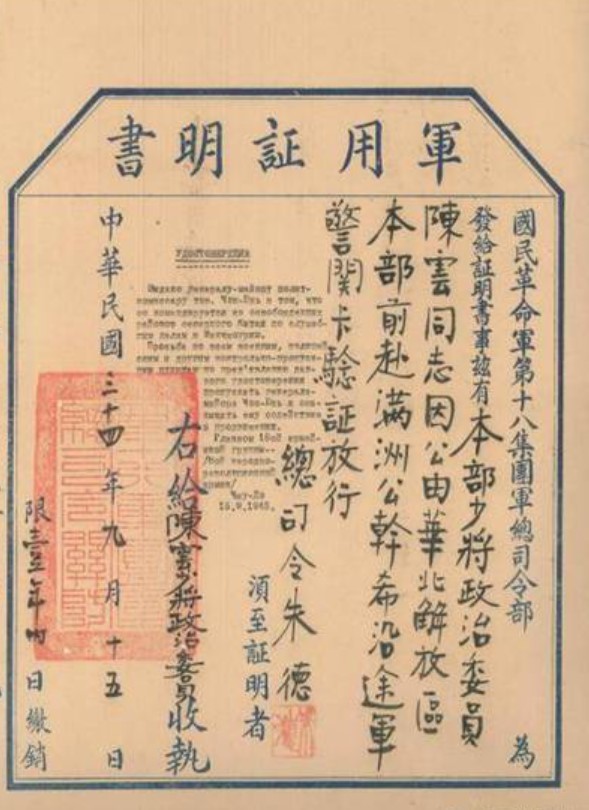 軍用証明書
國民革命軍第十八集團軍總司令部 為
發給証明書事茲有本部少將政治委員
陳雲同志因公由華北解放區
本部前赴滿洲公幹希沿途軍
警関卡驗証放行
總司令朱德
須至証明者
右給陳雲少將政治委員收執
УДОСТОВЕРЕНИЕ
Выдано генералу-майору полит-
комиссару тов. Чен-Юнь в том, что
он командируется из освобожденных
районов северного Китая по служеб-
ным делам в Манчжурию.
Просьба ко всем военным,
ским и другим контрольно-пропуск-
ным пунктам по пред'явлении дан-
ного удостоверения
пропускать генерала-
майора Чен-Юнь и ока-
зывать ему содействие
в продвижении.
Главком 18ой армей-
ской группы--
/8ой народно-
революционной
армии/
Чжу-Дэ
15.9.1945.
中華民國三十四年九月十五日
限壹年內日繳銷